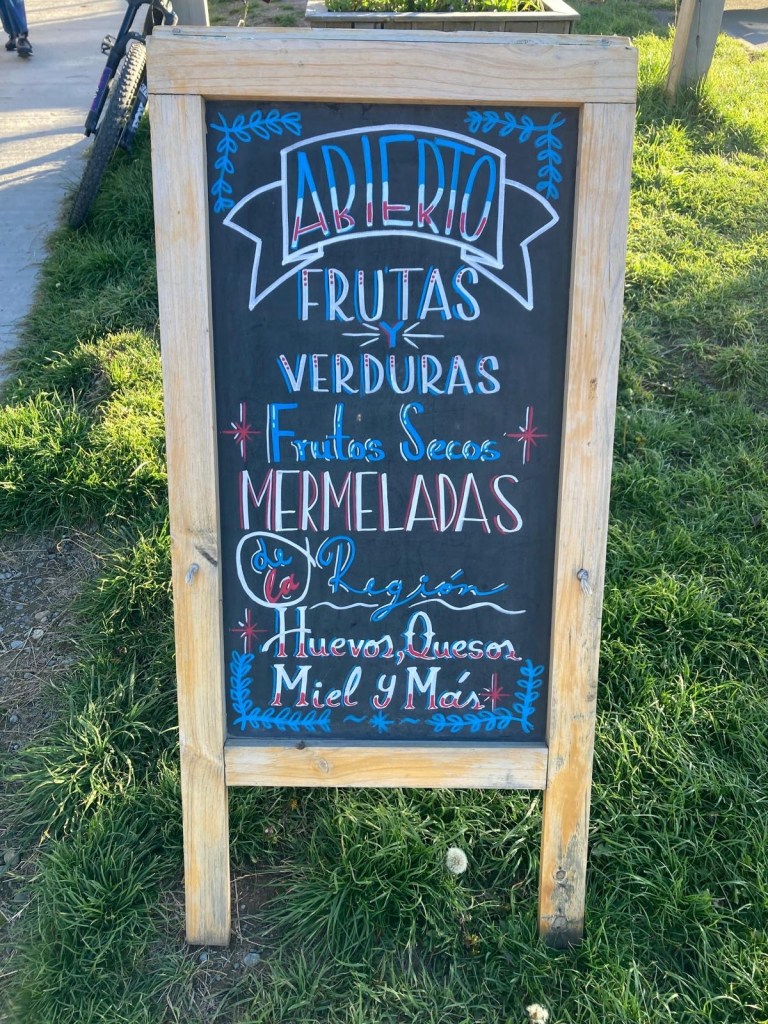 ABIERTO
FRUTAS
Y
VERDURAS
Frutos Secos
MERMELADAS
de la Región
Huevos, Quesos
Miel y Más